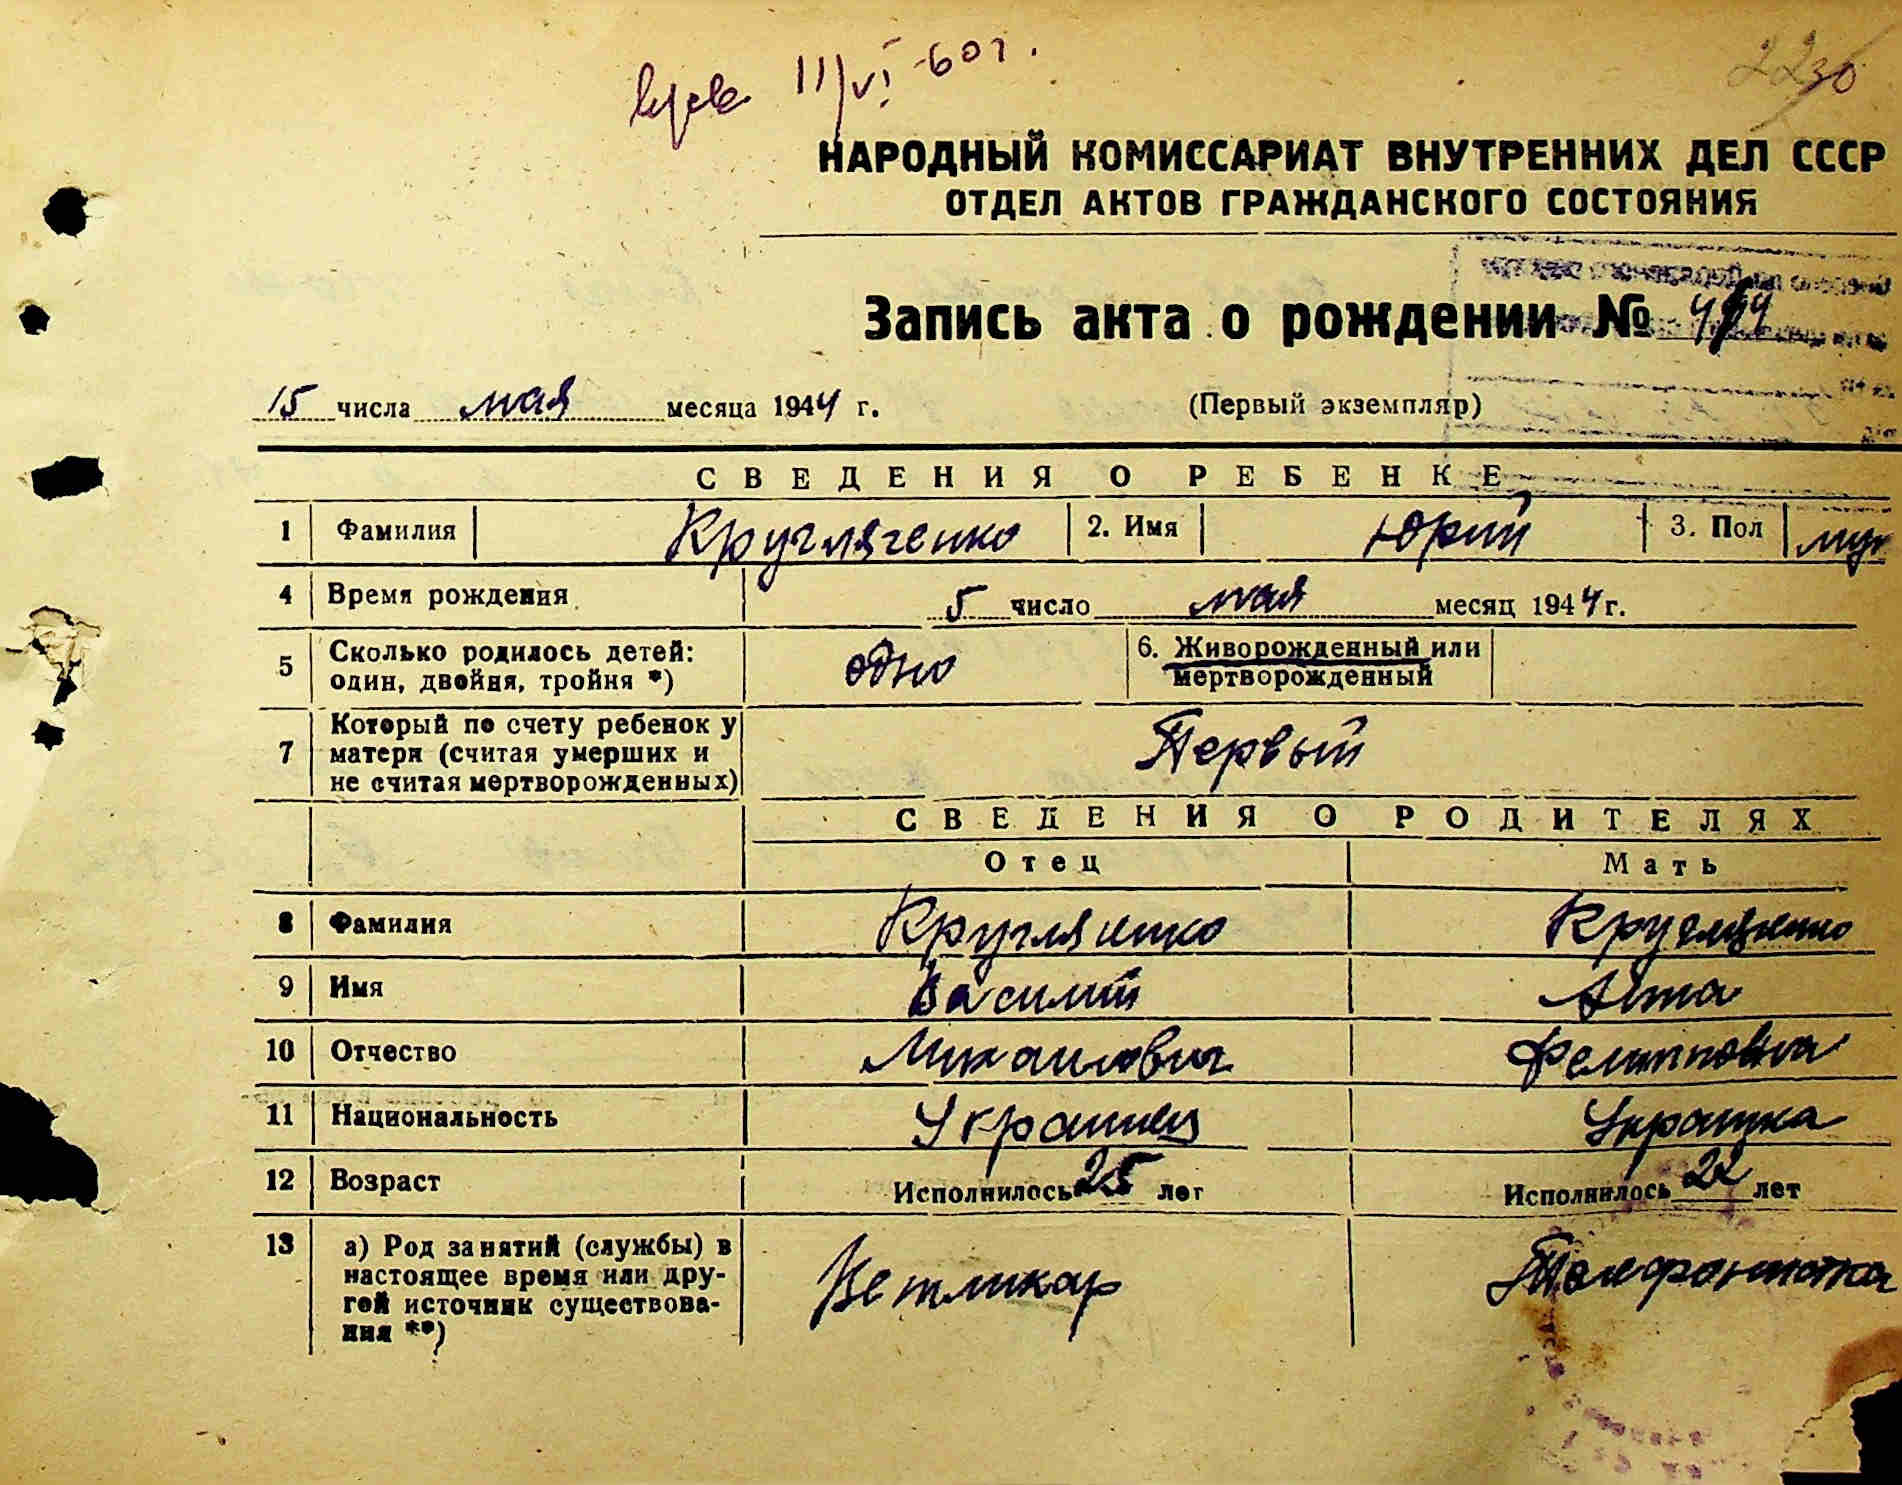 11/VI-60г.
2230
НАРОДНЫЙ КОМИССАРИАТ ВНУТРЕННИХ ДЕЛ СССР
ОТДЕЛ АКТОВ ГРАЖДАНСКОГО СОСТОЯНИЯ
Запись акта о рождении №
15 числа мая месяца 1944 г. (Первый экземпляр)
СВЕДЕНИЯ О РЕБЕНКЕ
1 Фамилия Кругляченко 2. Имя Юрий 3. Пол муж
4 Время рождения 5 число мая месяц 1944 г.
5 Сколько родилось детей: один, двойня, тройня *) одно 6. Живорожденный или мертворожденный
7 Который по счету ребенок у матери (считая умерших и не считая мертворожденных) Первый
СВЕДЕНИЯ О РОДИТЕЛЯХ
Отец Мать
8 Фамилия Кругляченко Кругляченко
9 Имя Василий Анна
10 Отчество Михайлович Филипповна
11 Национальность Украинец Украинка
12 Возраст Исполнилось 25 лет Исполнилось 22 лет
13 а) Род занятий (службы) в настоящее время или другой источник существования **) Телефонистка